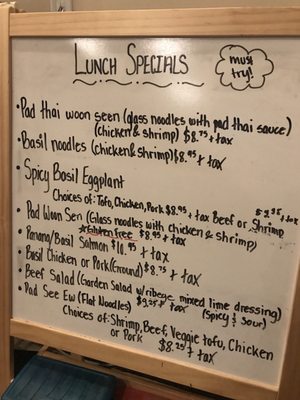 Lunch Specials
must try!
• Pad thai woon seen (glass noodles with pad thai sauce)
(chicken & shrimp) $8.75 + tax
• Basil noodles (chicken & shrimp) $8.95 + tax
• Spicy Basil Eggplant
Choices of: Tofu, Chicken, Pork $8.95 + tax Beef or Shrimp
+ tax
• Pad Woon Sen (Glass noodles with chicken & shrimp)
☆Gluten free $8.95 + tax
• Panang/Basil Salmon $10.95 + tax
• Basil Chicken or Pork (Ground) $8.75 + tax
• Beef Salad (Garden Salad w/ribeye mixed lime dressing)
$9.25 + tax (Spicy & Sour)
• Pad See Ew (Flat Noodles)
Choices of: Shrimp, Beef, Veggie tofu, Chicken
or Pork $8.25 + tax